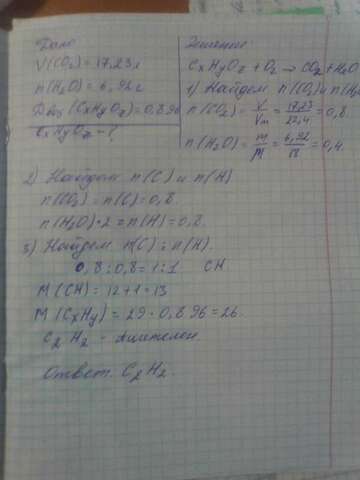 Дано
V(CO₂) = 17,23л
m(H₂O) = 6,92г
Двоз (CxHyOz) = 0,896
CxHyOz - ?
Решение
CxHyOz + O₂ → CO₂ + H₂O
1) Найдем n(CO₂) и n(H₂
n(CO₂) = V/Vm = 17,23/22,4 = 0,8.
n(H₂O) = m/M = 6,92/18 = 0,4.
2) Найдем n(C) и n(H)
n(CO₂) = n(C) = 0,8
n(H₂O)·2 = n(H) = 0,8.
3) Найдем n(C) : n(H).
0,8 : 0,8 = 1 : 1 CH
M(CH) = 12+1 = 13
M(CxHy) = 29·0,896 = 26.
C₂H₂ - ацетелен
Ответ. C₂H₂.